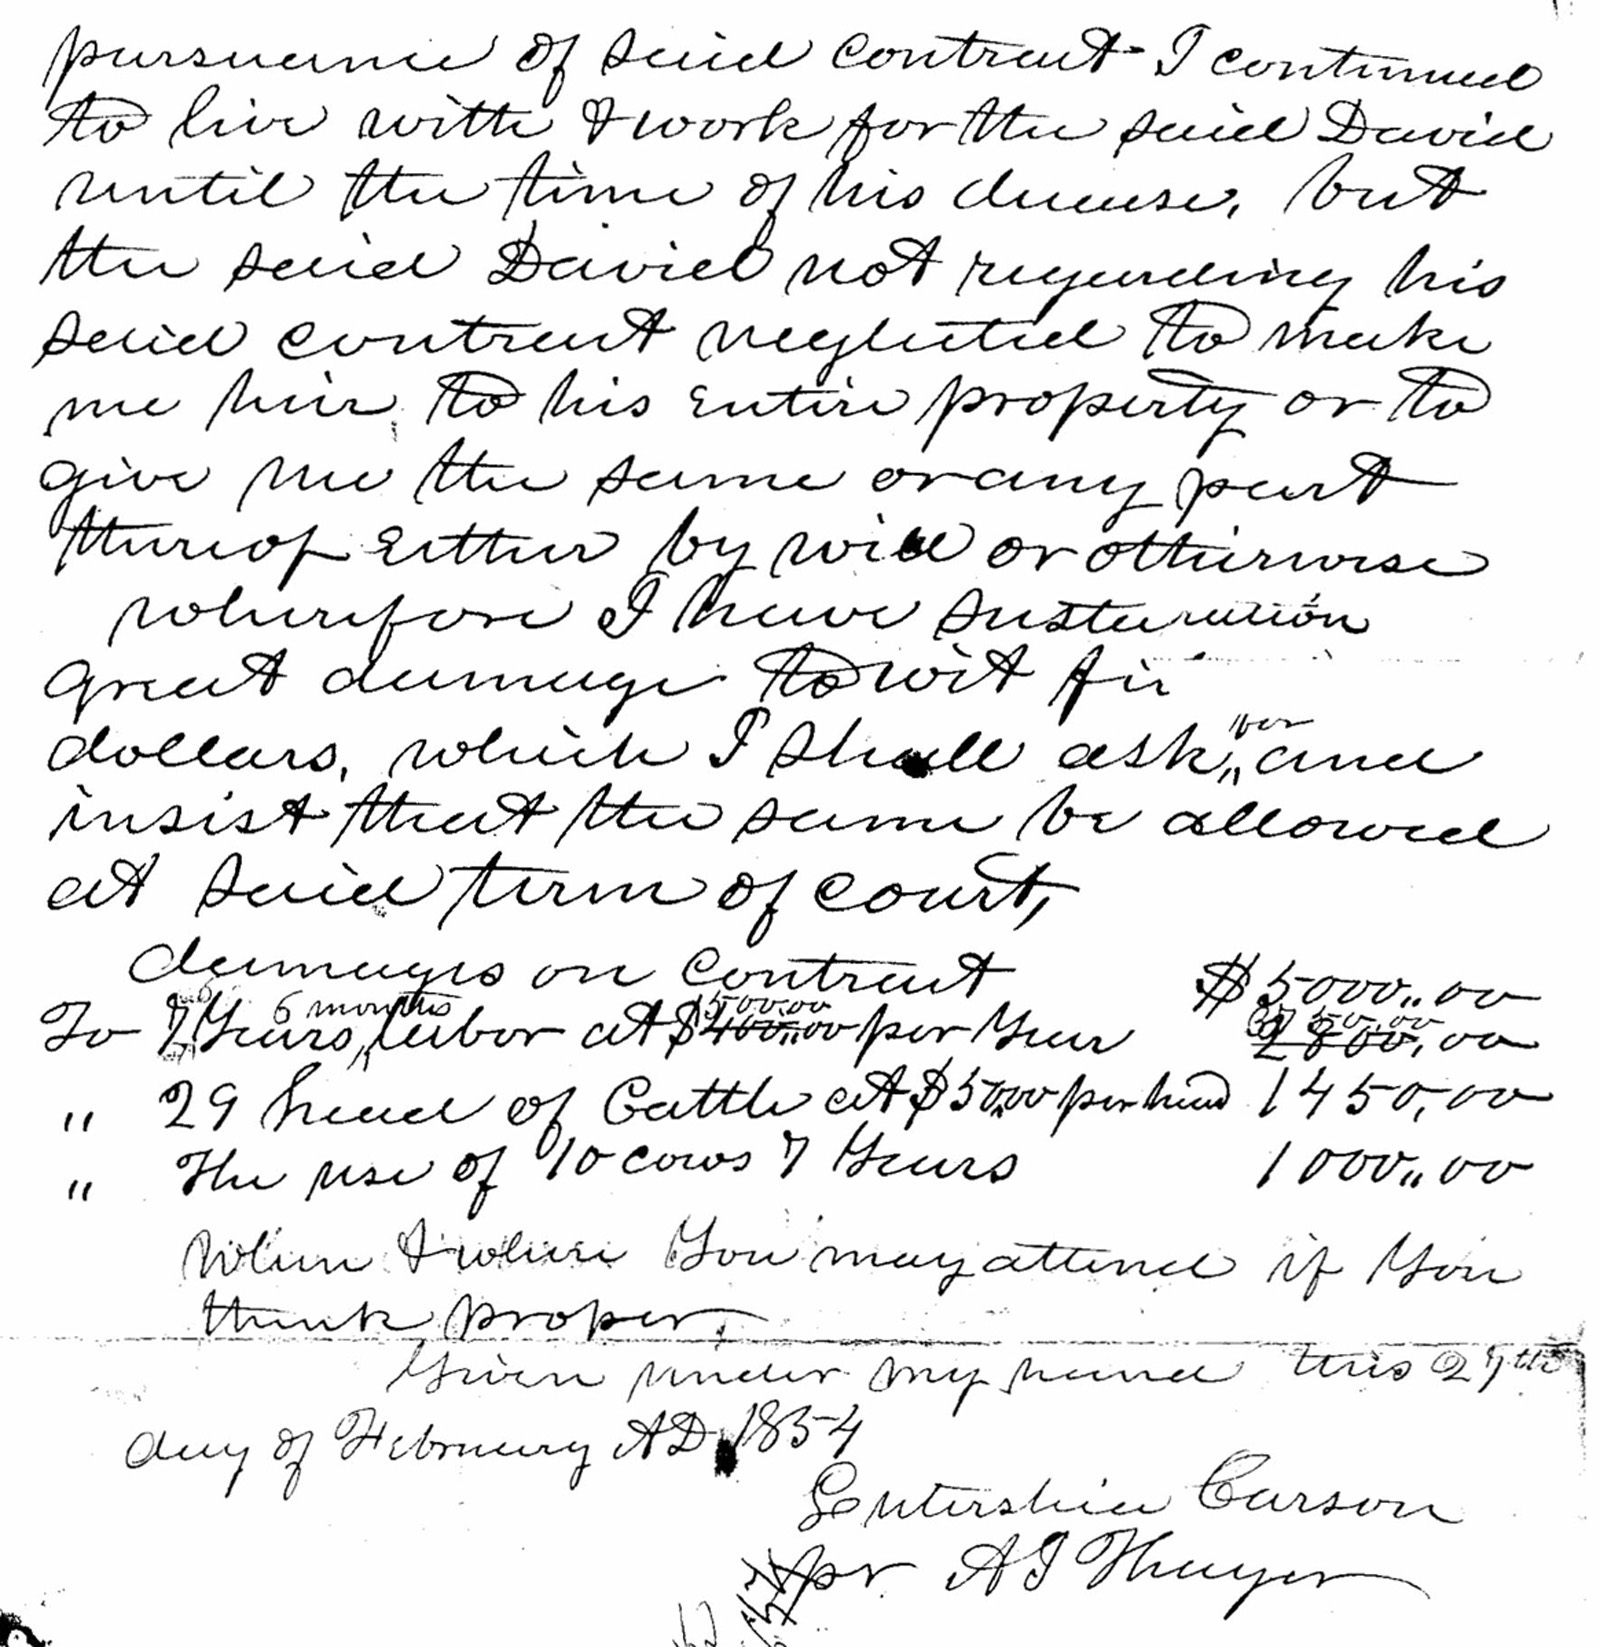 pursuance of said contract I continued
to live with & work for the said David
until the time of his decease, but
the said David not regarding his
said contract neglected to make
me heir to his Entire property or to
give me the same or any part
thereof Either by will or otherwise
wherefore I have
great damage to wit
dollars, which I shall ask for and
insist that the same be allowed
at said term of court,
damages on contract $5000,,00
6 months 500,00
To 7 Years, labor at $400,,00 per Year 2800,00
" 29 head of Cattle at $50,00 per head 1450,00
" The use of 10 cows 7 Years 1000,,00
When & where You may attend if You
think proper,
Given under my hand this 27th
day of February AD 1854
Carson
pr A J Thayer